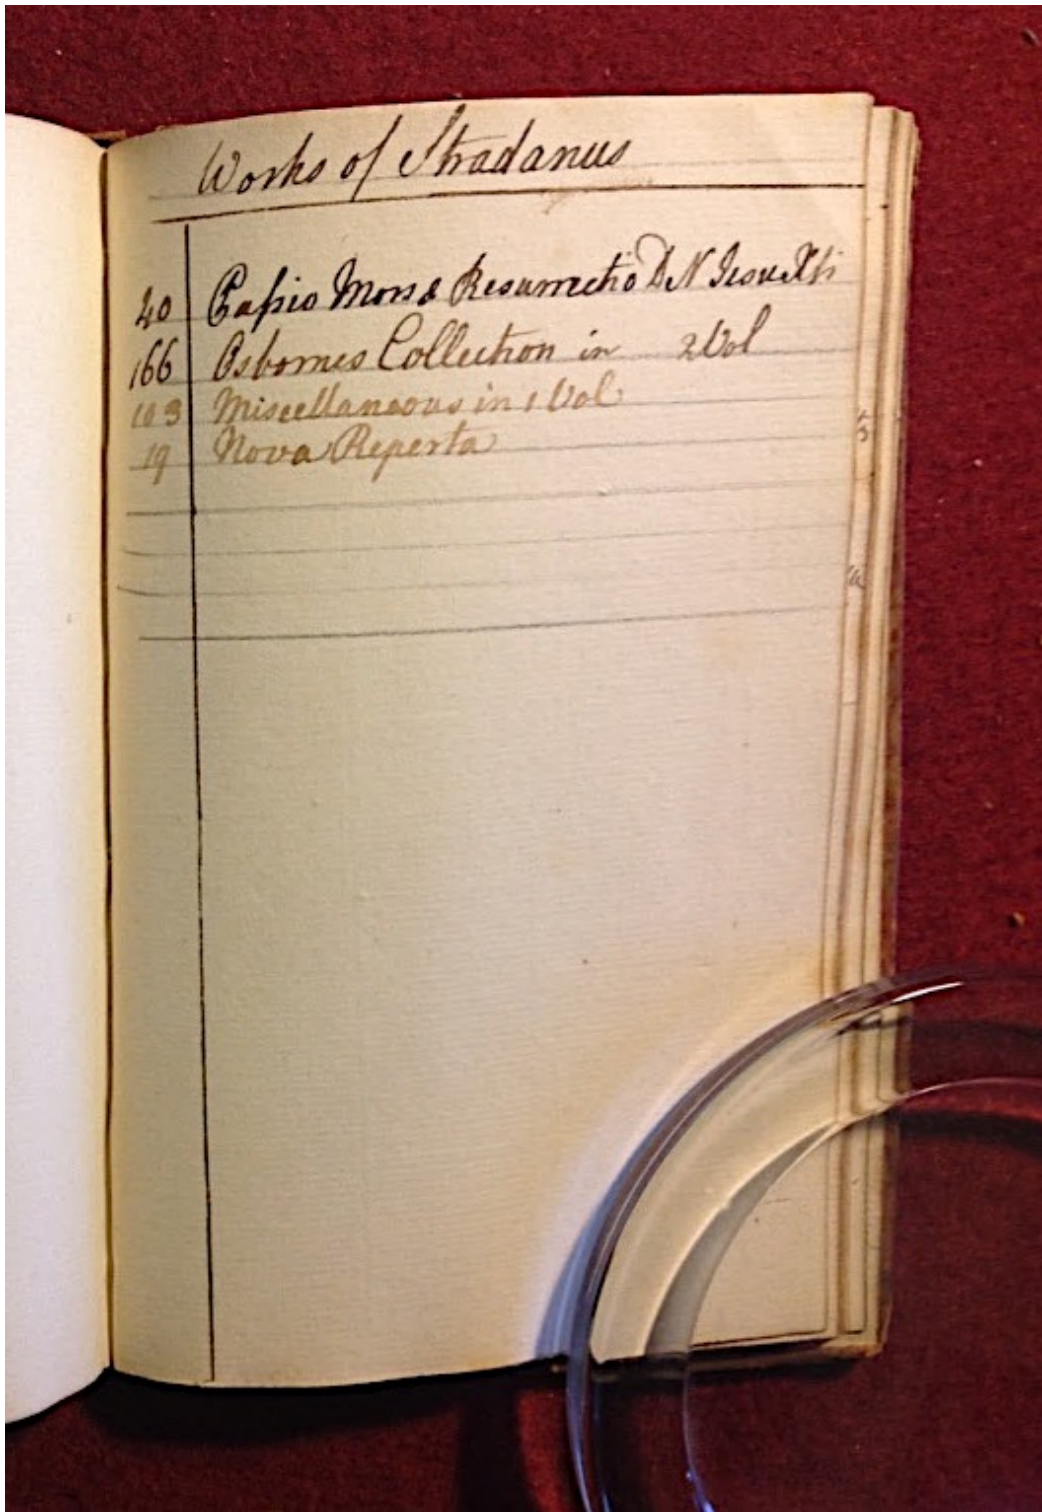 Works of Stradanus
40 Passio Mors & Resurrectio D N Iesu Xti
166 Osbornes Collection in 2 Vol
103 Miscellaneous in 1 Vol
19 Nova Reperta